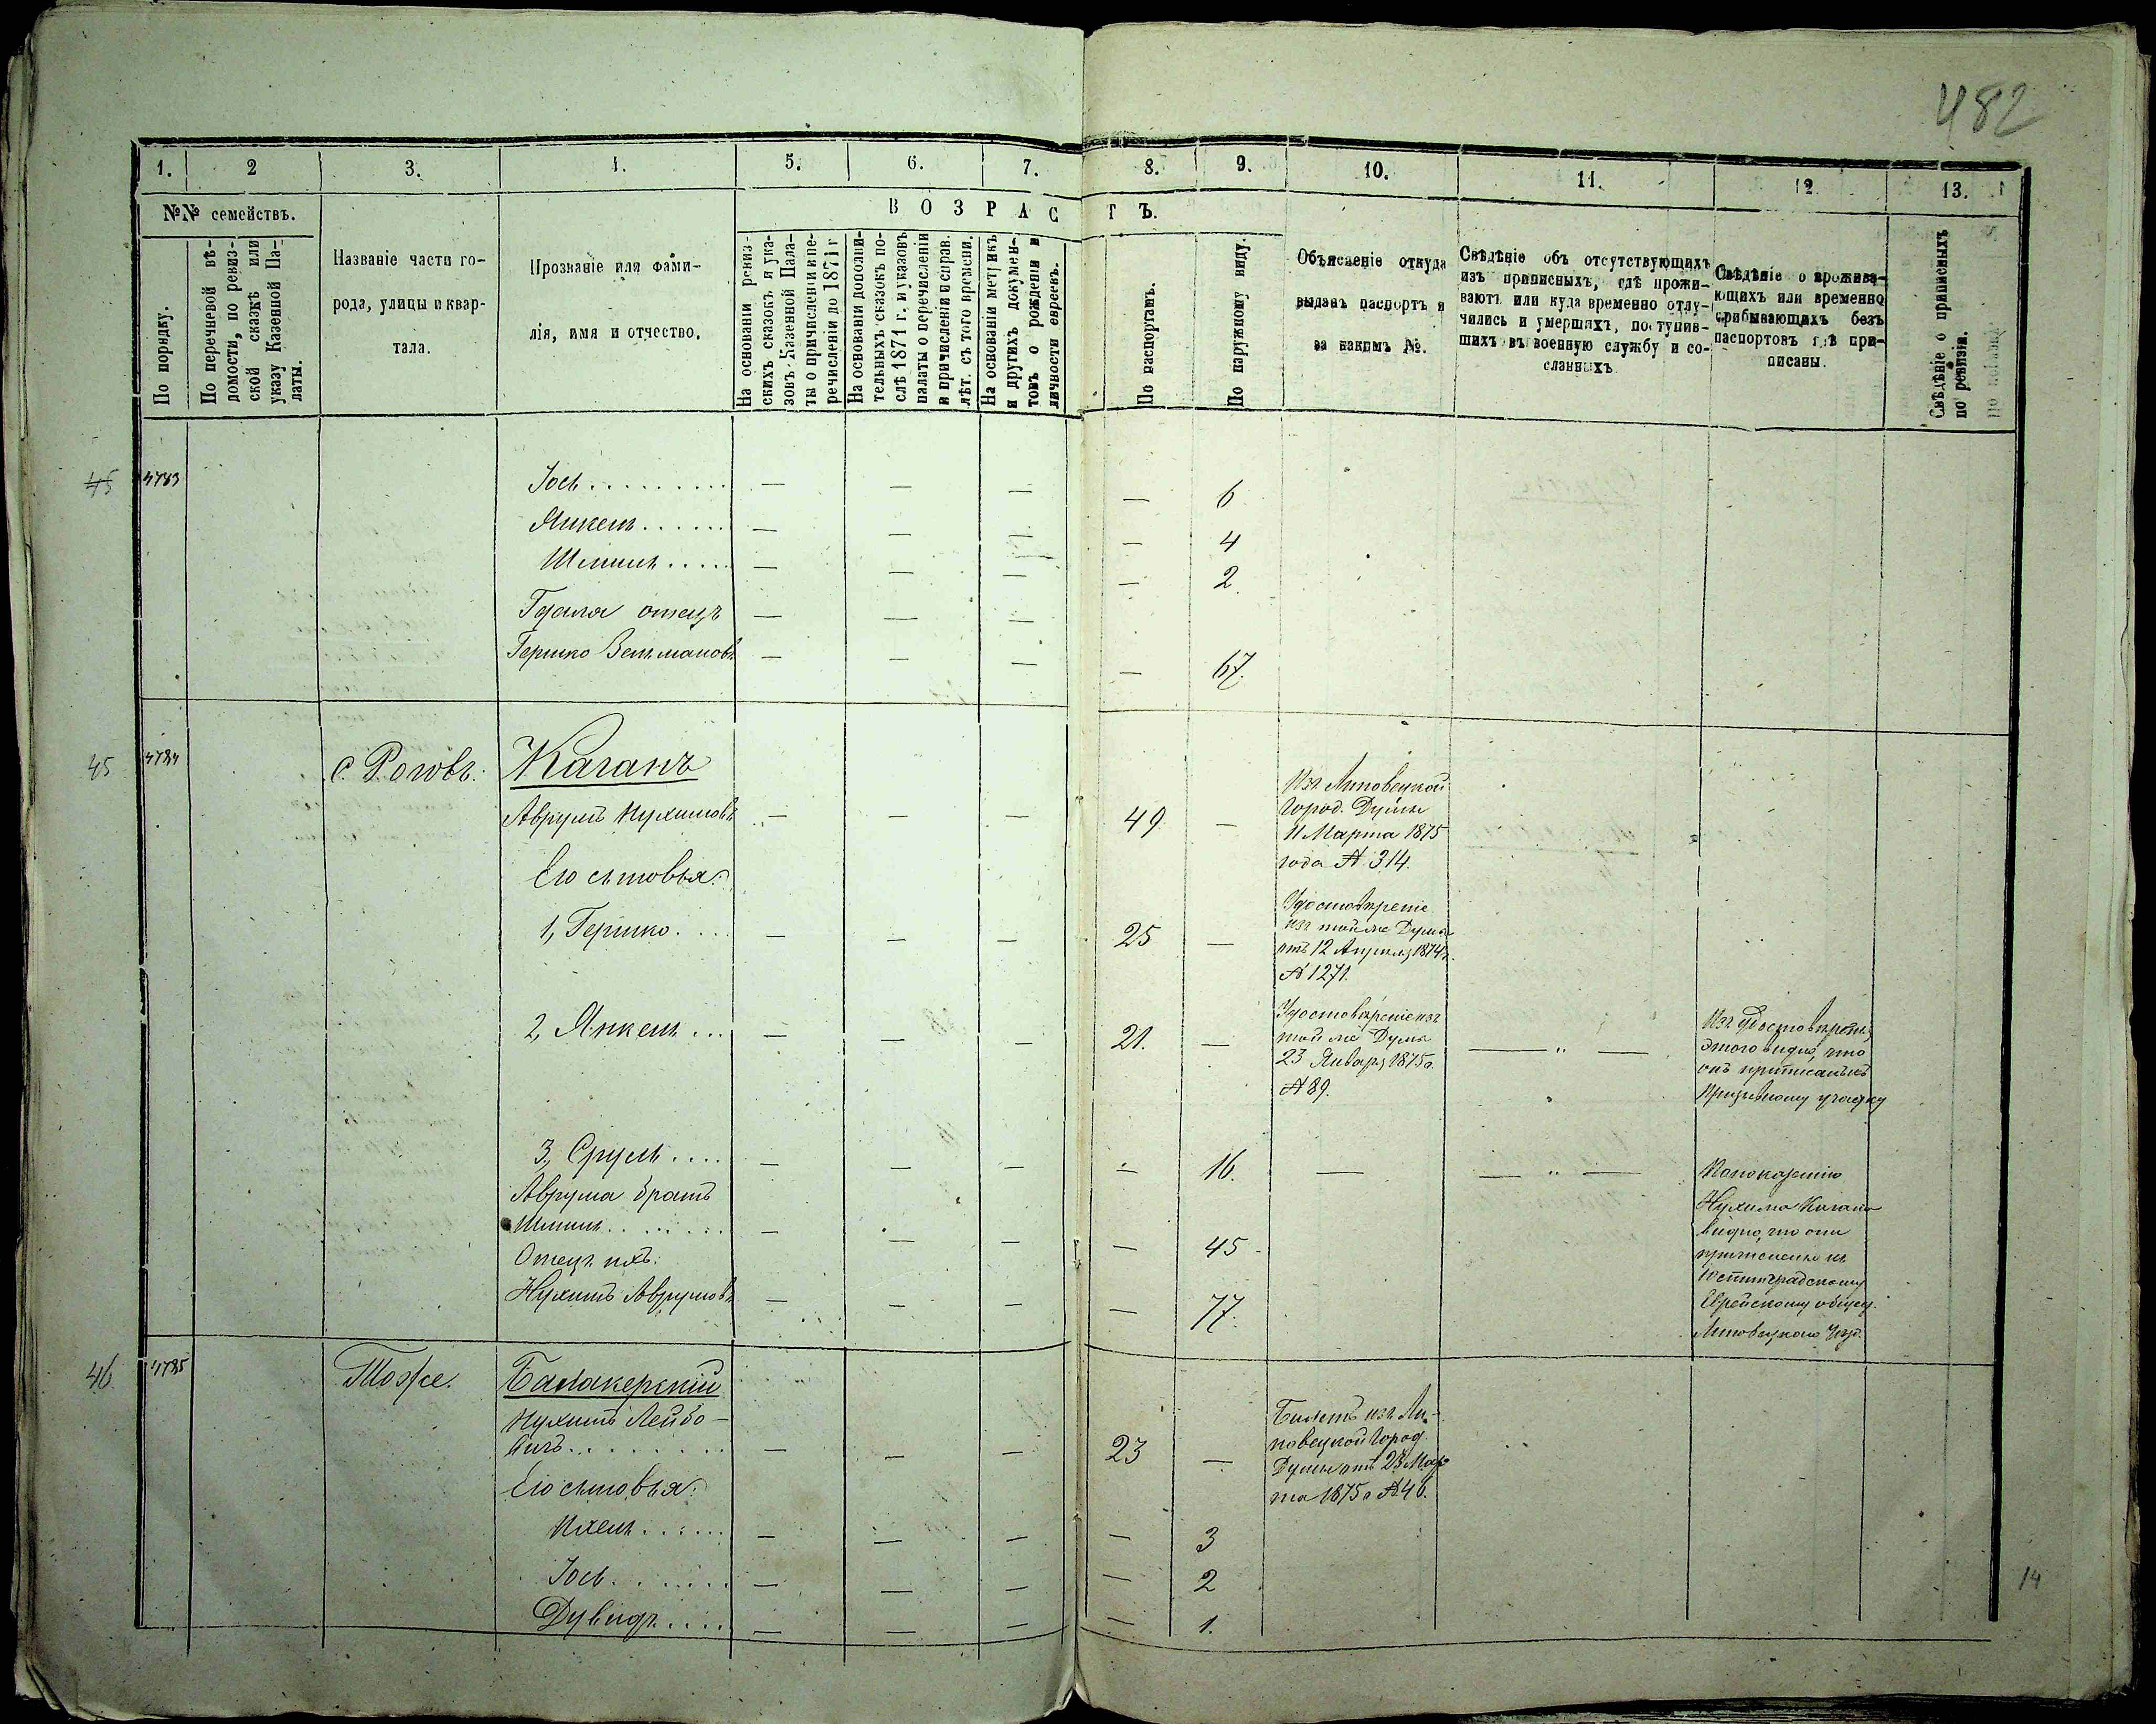 482
1. 2 3. 4. 5. 6. 7. 8. 9. 10. 11. 12 13.
№№ семействъ.
ВОЗРАСТЪ.
По порядку.
По перечневой вѣ-
домости, по ревиз-
ской сказкѣ или
указу Казенной Па-
латы.
Названіе части го-
рода, улицы и квар-
тала.
Прозваніе или фами-
лія, имя и отчество.
На основаніи ревиз-
скихъ сказокъ и ука-
зовъ Казенной Пала-
ты о причисленіи и пе-
речисленіи до 1871 г
На основаніи дополни-
тельныхъ сказокъ по-
слѣ 1871 г. и указовъ
палаты о перечисленіи
и причисленіи и справ.
лѣт. съ того времени.
На основаніи метрикъ
и другихъ докумен-
товъ о рожденіи и
личности евреевъ.
По паспортамъ.
По наружному виду.
Объясненіе откуда
выданъ паспортъ и
за какимъ №.
Свѣдѣніе объ отсутствующихъ
изъ приписныхъ, гдѣ прожи-
ваютъ или куда временно отлу-
чились и умершихъ, поступив-
шихъ въ военную службу и со-
сланныхъ
Свѣдѣніе о прожива-
ющихъ или временно
прибывающихъ безъ
паспортовъ гдѣ при-
писаны.
Свѣдѣніе о приписныхъ
по ревизіи.
45 4783 Іось......... — — — — 6
Янкель...... — — — — 4
Шмиль..... — — — — 2.
Гдаля отецъ — — —
Гершко Вельмановъ — — — — 67.
45 4784 с. Роговъ. Каганъ
Аврумъ Нухимовъ — — — 49 —
Изъ Липовецкой
Город. Думы
11 Марта 1875
года № 314.
Его сыновья:
1, Гершко.... — — — 25 —
Удостовѣреніе
изъ той же Думы
отъ 12 Апрѣля 1874 г.
№ 1271.
2, Янкель... — — — 21. —
Удостовѣреніе изъ
той же Думы
23 Января 1875 г.
№ 89.
— " —
Изъ удостовѣренія
этого видно, что
онъ приписанъ къ
Призывному участку
3, Сруль.... — — — — 16. — — " —
Аврума братъ
Шмиль........ — — — — 45
Отецъ ихъ:
Нухимъ Аврумовъ — — — — 77.
По показанію
Нухима Кагана
видно, что они
причислены къ
Юстинградскому
Еврейскому общес.
Липовецкаго Уѣзд.
46 4785 Тоже. Балакерскій
Нухимъ Лейбо-
вичъ........ — — — 23 —
Билетъ изъ Ли-
повецкой Город.
Думы отъ 23 Мар-
та 1875 г № 46.
Его сыновья:
Ихель...... — — — — 3
Іось....... — — — — 2
Дувидъ.... — — — — 1.
14